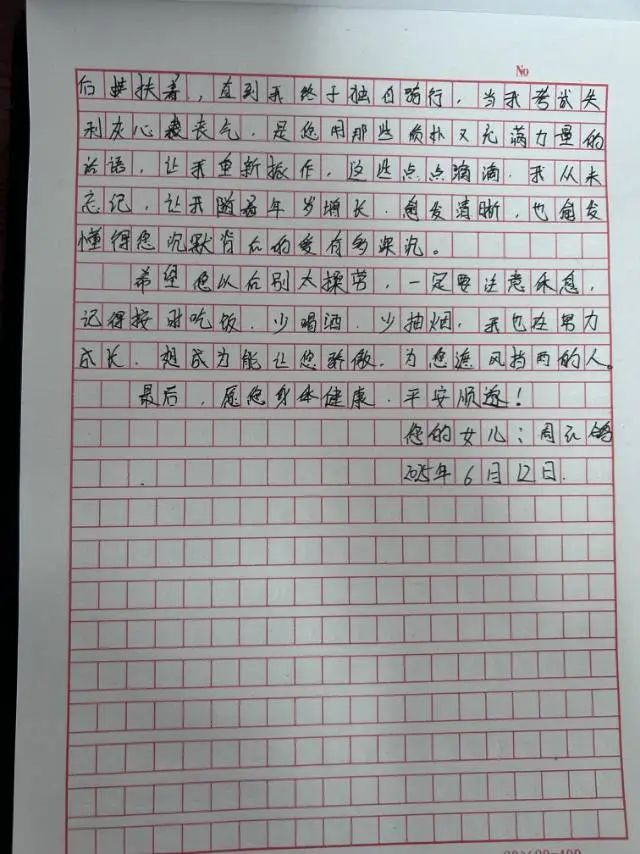 No
后面扶着，直到我终于独自骑行，当我考试失
利灰心丧气，是您用那些质朴又充满力量的
话语，让我重新振作，这些点点滴滴，我从未
忘记，让我随着年岁增长，愈发清晰，也愈发
懂得您沉默背后的爱有多深沉。
希望您以后别太操劳，一定要注意休息，
记得按时吃饭，少喝酒，少抽烟，我也在努力
成长，想成为能让您骄傲，为您遮风挡雨的人。
最后，愿您身体健康，平安顺遂！
您的女儿：周
2025年6月12日.